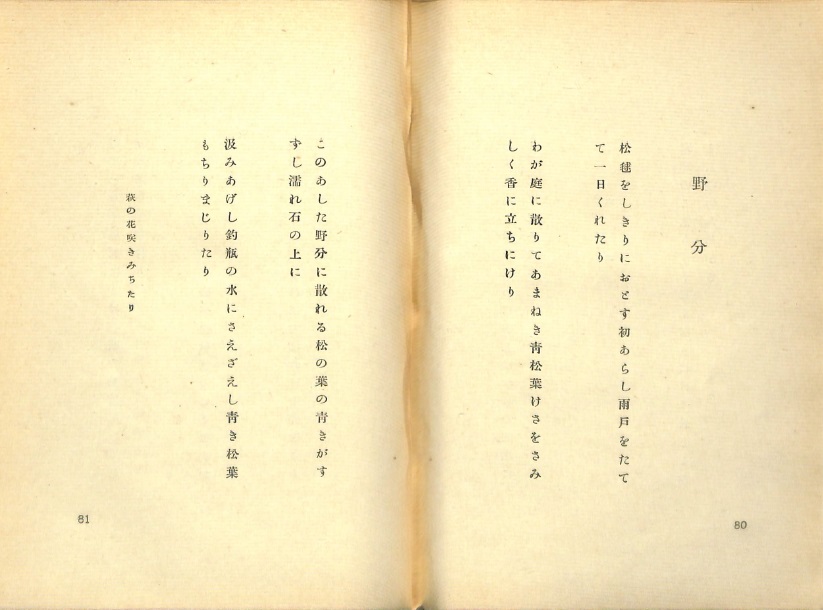 野分
松毬をしきりにおとす初あらし雨戸をたて
て一日くれたり
わが庭に散りてあまねき青松葉けさをさみ
しく香に立ちにけり
80
このあした野分に散れる松の葉の青きがす
ずし濡れ石の上に
汲みあげし釣瓶の水にさえざえし青き松葉
もちりまじりたり
萩の花咲きみちたり
81